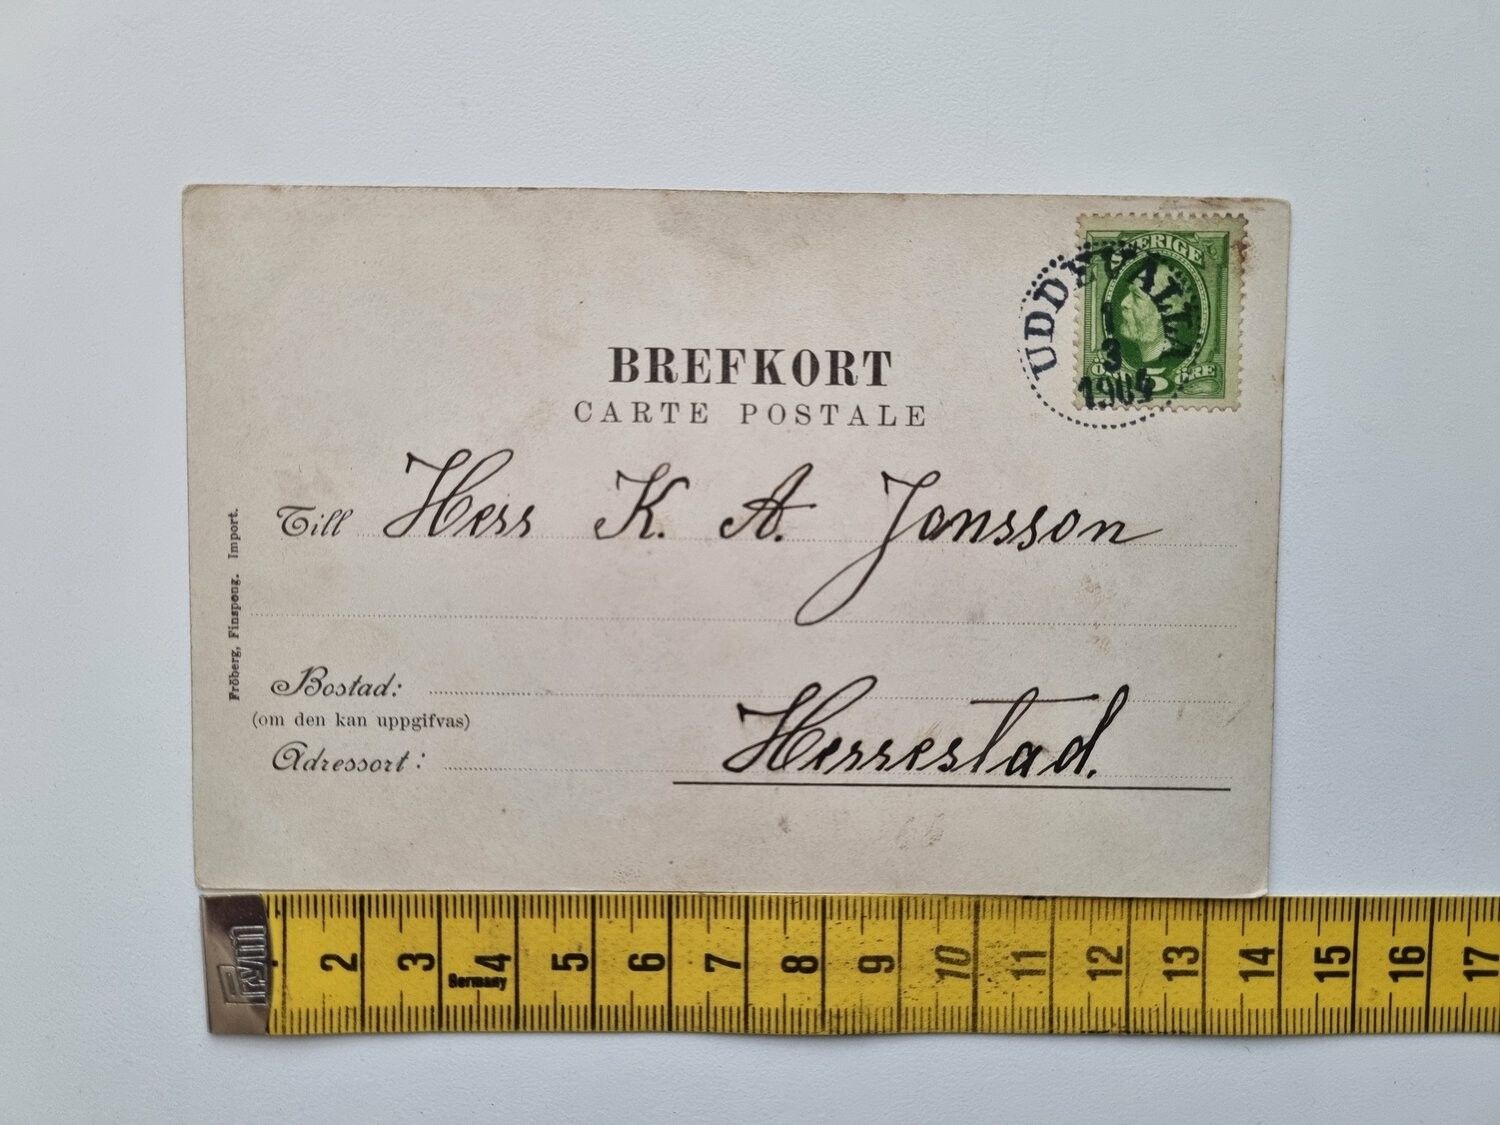 SVERIGE
5 ÖRE
UDDEVALLA
3
1905
BREFKORT
CARTE POSTALE
Till Herr K. A. Jansson
Bostad:
(om den kan uppgifvas)
Adressort: Herrestad.
Fröberg, Finspong. Import.
Prym
2 3 4 5 6 7 8 9 10 11 12 13 14 15 16 17
Germany